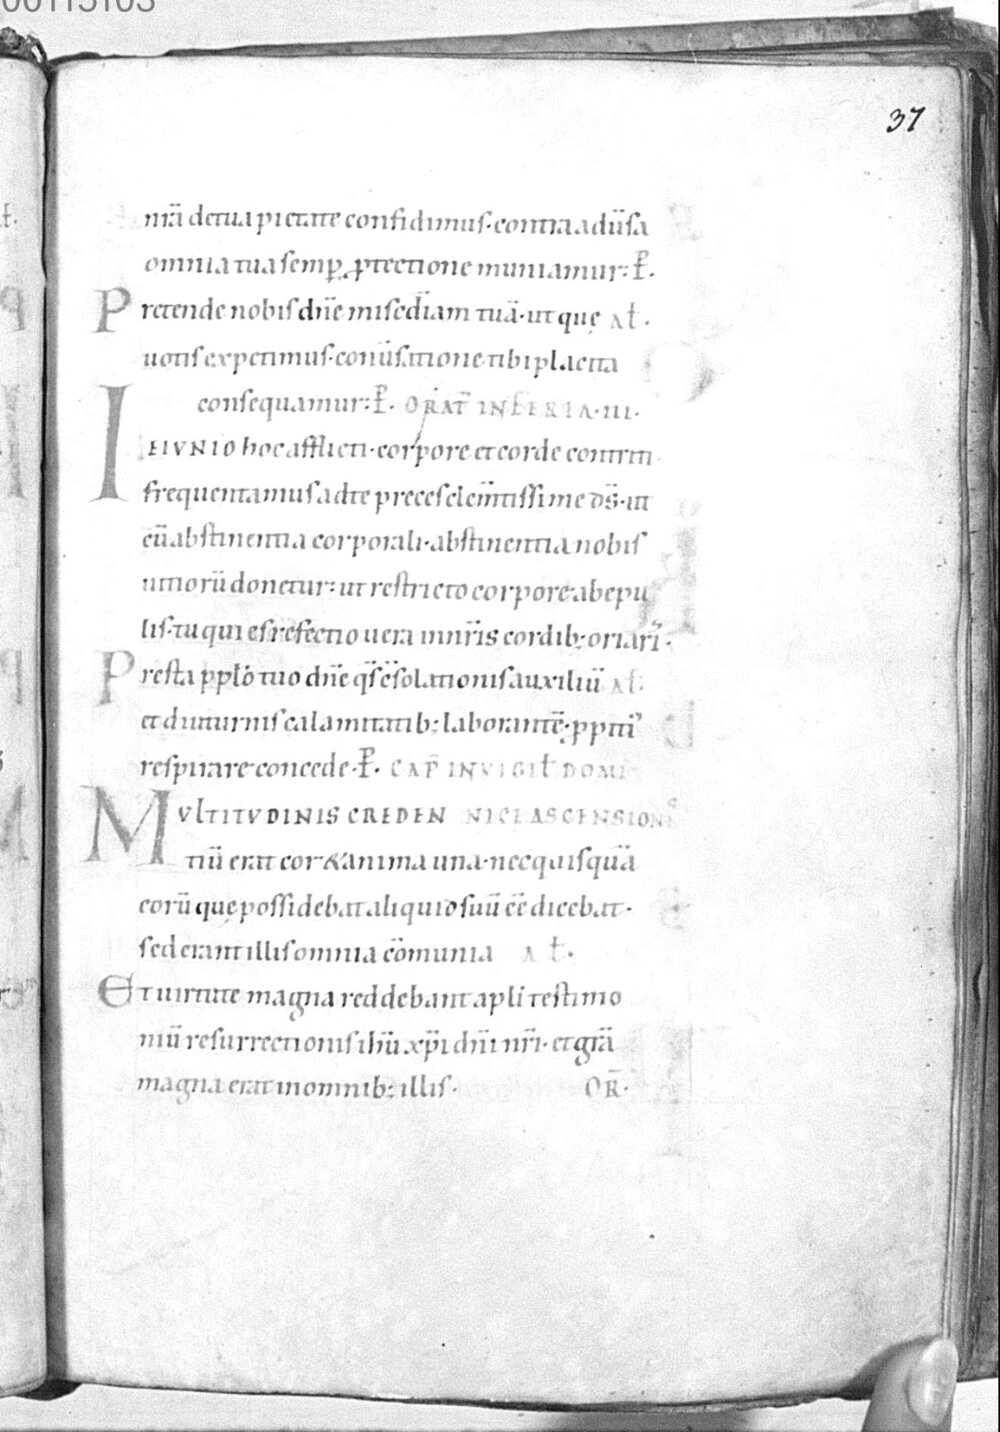 00115103
37
nr̄a de tua pietate confidimus· contra adūsa
omnia tua semp̱ ꝓtectione muniamur:· P̄.
Pretende nobis dn̄e misedīam tuā· ut que Al̄.
uotis expetimus· conūsatione tibi placita
consequamur:· P̄. ORAT̄ IN FERIA· III·
IEIVNIO hoc afflicti· corpore et corde contriti
frequentamus ad te preces clem̄tissime ds̄· ut
cū abstinentia corporali· abstinentia nobis
uitiorū donetur:· ut restricto corpore· ab epu
lis· tu qui es refectio uera in nr̄is cordib; oriaris·
Presta pplō tuo dn̄e qs̄ c̄solationis auxiliū Al̄.
et diuturnis calamitatib; laborantē· ꝓpitiꝰ
respirare concede· P̄. CAP̄ IN VIGIL̄ DOMI
MVLTITVDINIS CREDEN NICE ASCENSIONS
tiū erat cor & anima una· nec quisquā
eorū que possidebat aliquid suū eē dicebat·
sed erant illis omnia cōmunia Al̄.
Et uirtute magna reddebant apli testimo
niū resurrectionis ih̄u xp̄i dn̄i nr̄i· et grā
magna erat in omnib; illis· OR̄·